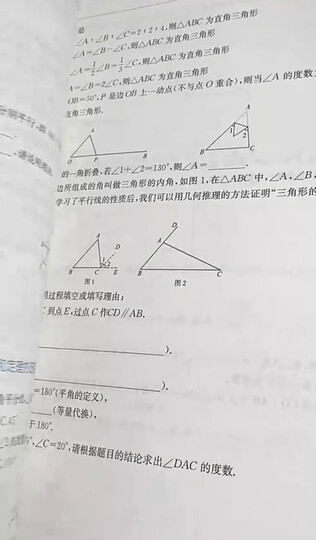 是
∠A:∠B:∠C=2:2:4,则△ABC为直角三角形
∠A=∠B-∠C,则△ABC为直角三角形
∠A=1/2∠B=1/3∠C,则△ABC为直角三角形
A=∠B=2∠C,则△ABC为直角三角形
OB=50°,P是边OB上一动点(不与点O重合),则当∠A的度数
直角三角形.
A
O P B
A
1 2
B C
的一角折叠,若∠1+∠2=130°,则∠A=
边所组成的角叫做三角形的内角,如图1,在△ABC中,∠A,∠B,
学习了平行线的性质后,我们可以用几何推理的方法证明“三角形的
A
D
B C E
图1
D
A
B C
图2
过程填空或填写理由:
到点E,过点C作CD∥AB.
).
).
=180°(平角的定义),
(等量代换),
于180°.
,∠C=20°,请根据题目的结论求出∠DAC的度数.